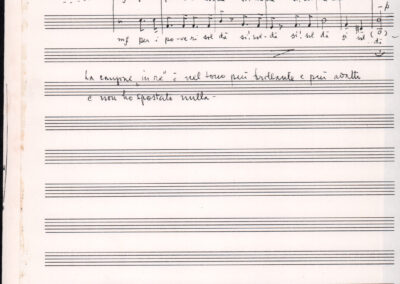 p
mf per i po-ve-ri sol-dà si! sol-dà si! sol-dà si sol(-)
dà
La canzone "in re" è nel tono più brillante e più adatto
e non ho spostato nulla -